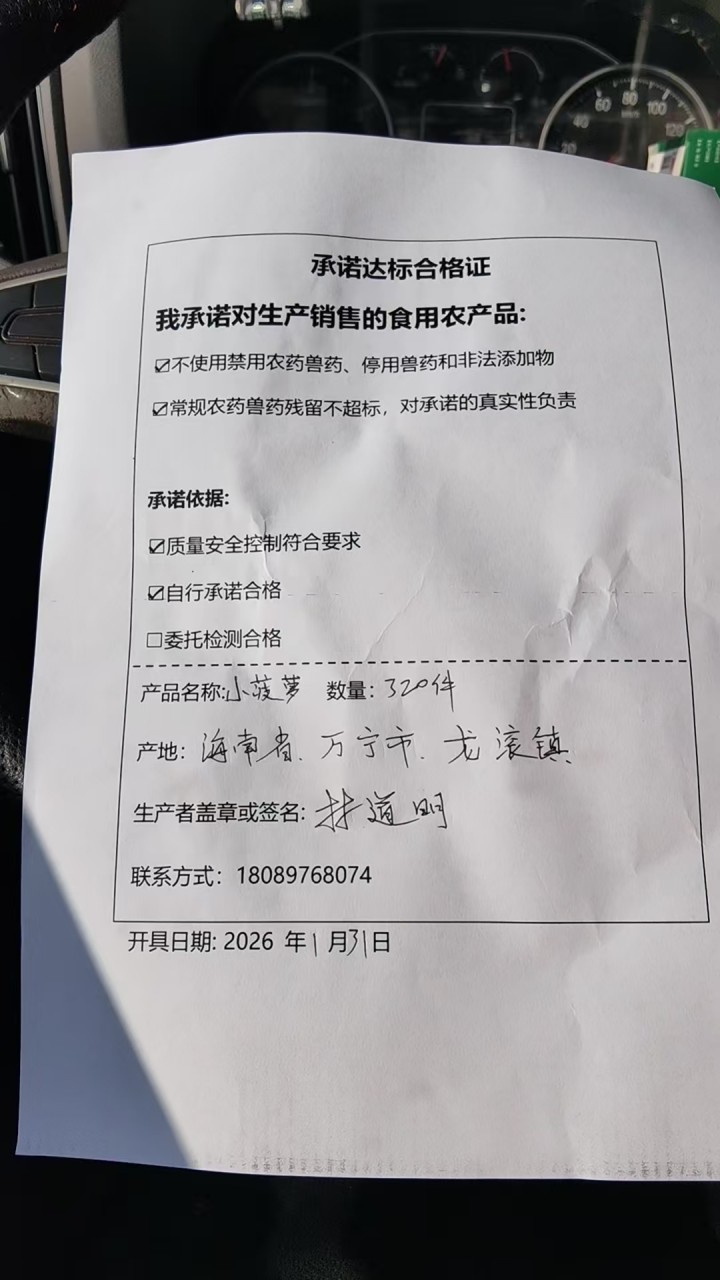 60 80 100
40 120
20
承诺达标合格证
我承诺对生产销售的食用农产品:
☑不使用禁用农药兽药、停用兽药和非法添加物
☑常规农药兽药残留不超标，对承诺的真实性负责
承诺依据:
☑质量安全控制符合要求
☑自行承诺合格
☐委托检测合格
产品名称:小菠萝 数量: 320件
产地: 海南省、万宁市、龙滚镇
生产者盖章或签名: 林道明
联系方式: 18089768074
开具日期: 2026 年1月31日